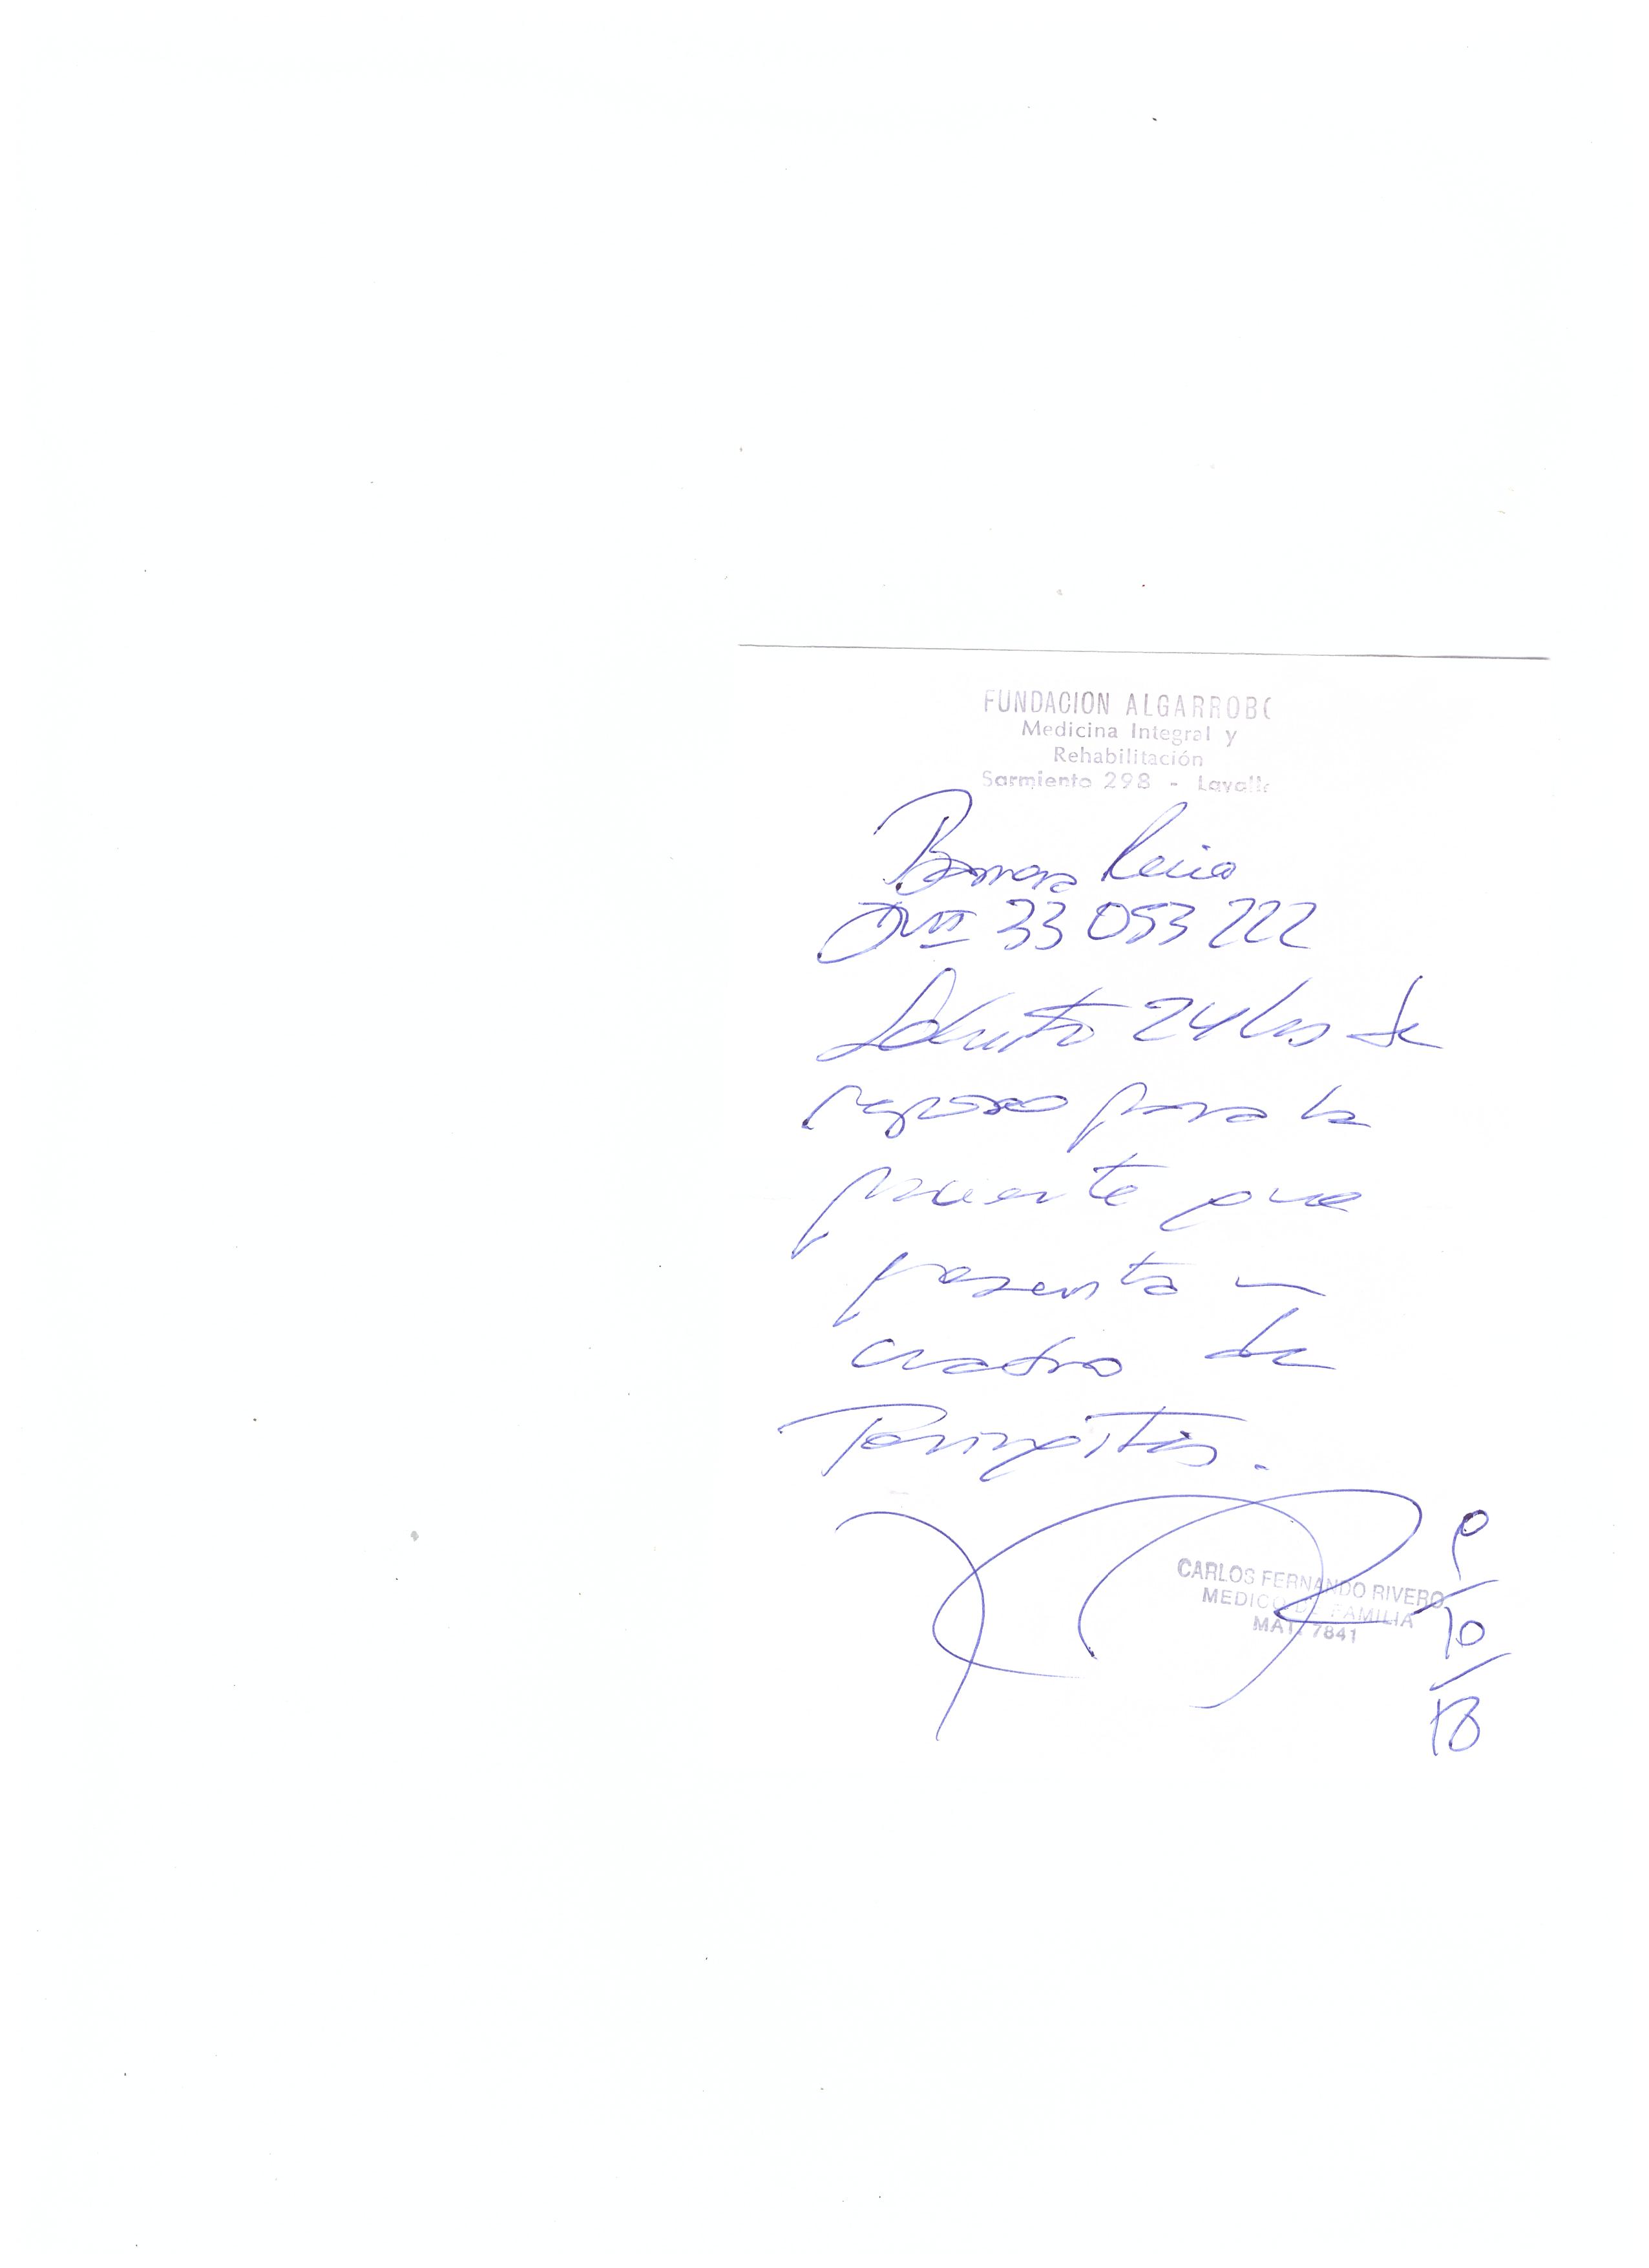 FUNDACION ALGARROBO
Medicina Integral y
Rehabilitación
Sarmiento 298 - Lavalle
DNI 33 053 222
Solicito 24 hs de
reposo para la
paciente que
presenta un
cuadro de
Faringitis.
CARLOS FERNANDO RIVERO
MEDICO DE FAMILIA
MAT. 7841
9/10/18